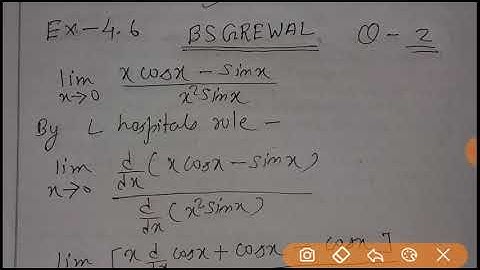 Ex-4.6 BSGREWAL Q-2
lim x→0 x cosx - sinx / x²sinx
By L hospitals rule -
lim x→0 d/dx (x cosx - sinx) / d/dx (x²sinx)
lim [x d/dx cosx + cosx cosx]